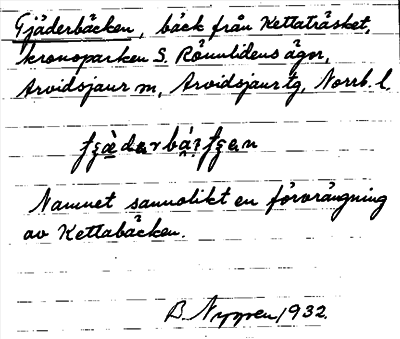 Tjäderbäcken, bäck från Kettaträsket,
kronoparken S. Rönnlidens ägor,
Arvidsjaur sn, Arvidsjaur tg, Norrb. l.
Namnet sannolikt en förvrängning
av Kettabäcken.
B. Nygren 1932.